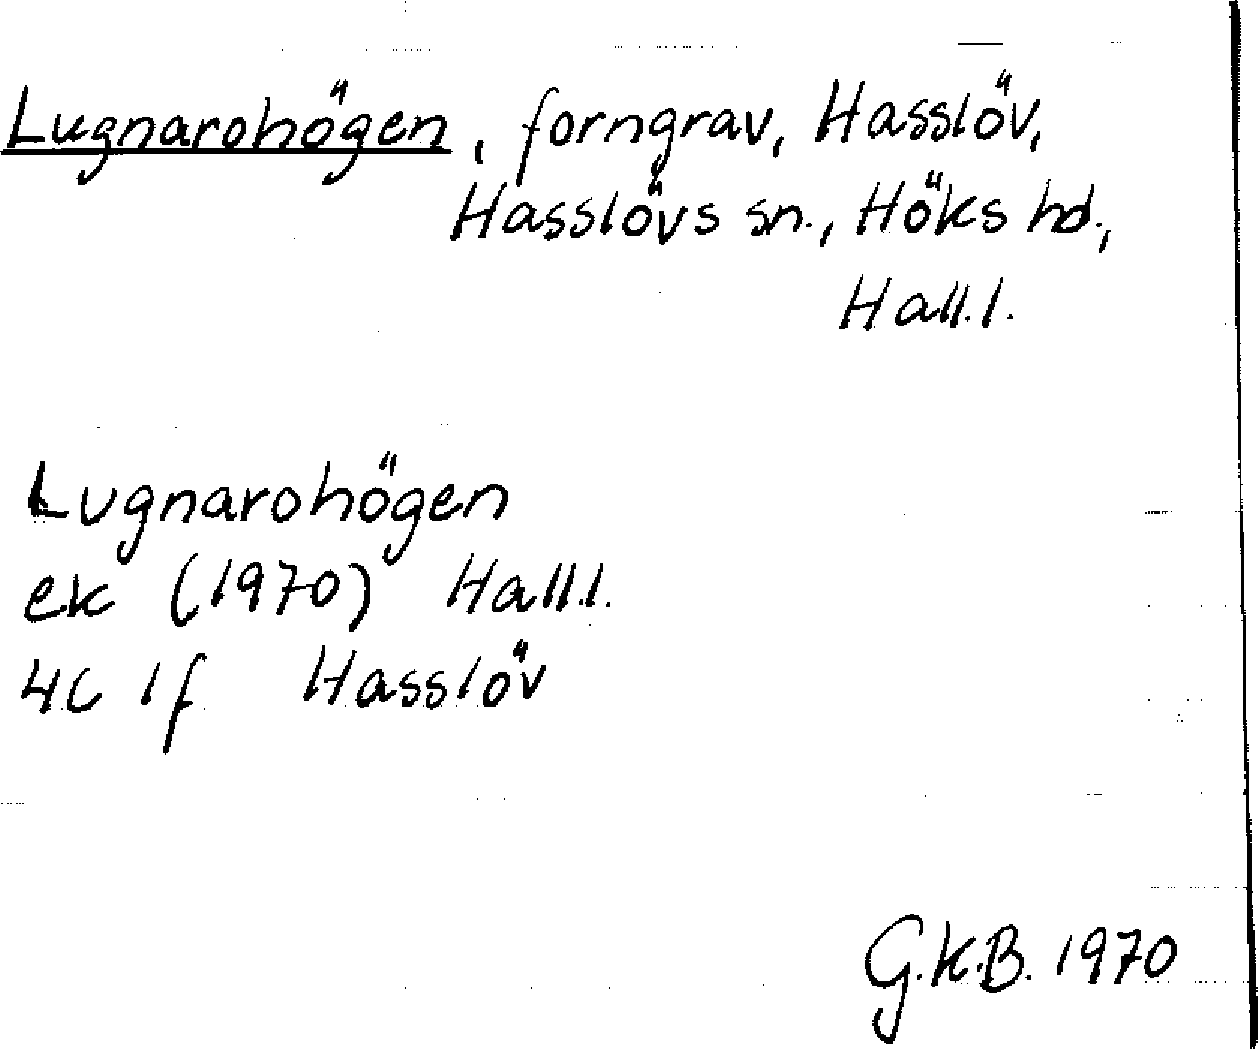 Lugnarohögen, forngrav, Hasslöv,
Hasslövs sn., Höks hd.,
Hall.l.
Lugnarohögen
ek (1970) Hall.l.
4C 1f Hasslöv
G.K.B. 1970